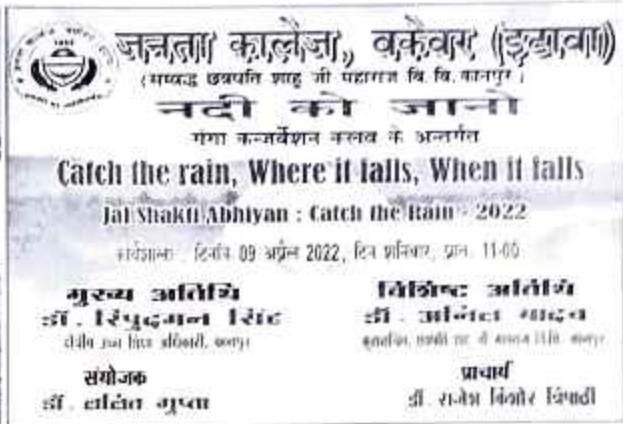 जनता कालेज, वकेवर (इटावा)
(सम्बद्ध छत्रपति शाहू जी महाराज वि. वि. कानपुर)
नदी को जानो
गंगा कन्जर्वेशन क्लव के अन्तर्गत
Catch the rain, Where it falls, When it falls
Jal Shakti Abhiyan : Catch the Rain - 2022
कार्यशाला दिनाँक 09 अप्रैल 2022, दिन शनिवार, प्रातः 11-00
मुख्य अतिथि
डॉ. रिपुदमन सिंह
क्षेत्रीय उच्च शिक्षा अधिकारी, कानपुर
विशिष्ट अतिथि
डॉ. अनिल यादव
संयोजक
डॉ. ललित गुप्ता
प्राचार्य
डॉ. राजेश किशोर त्रिपाठी